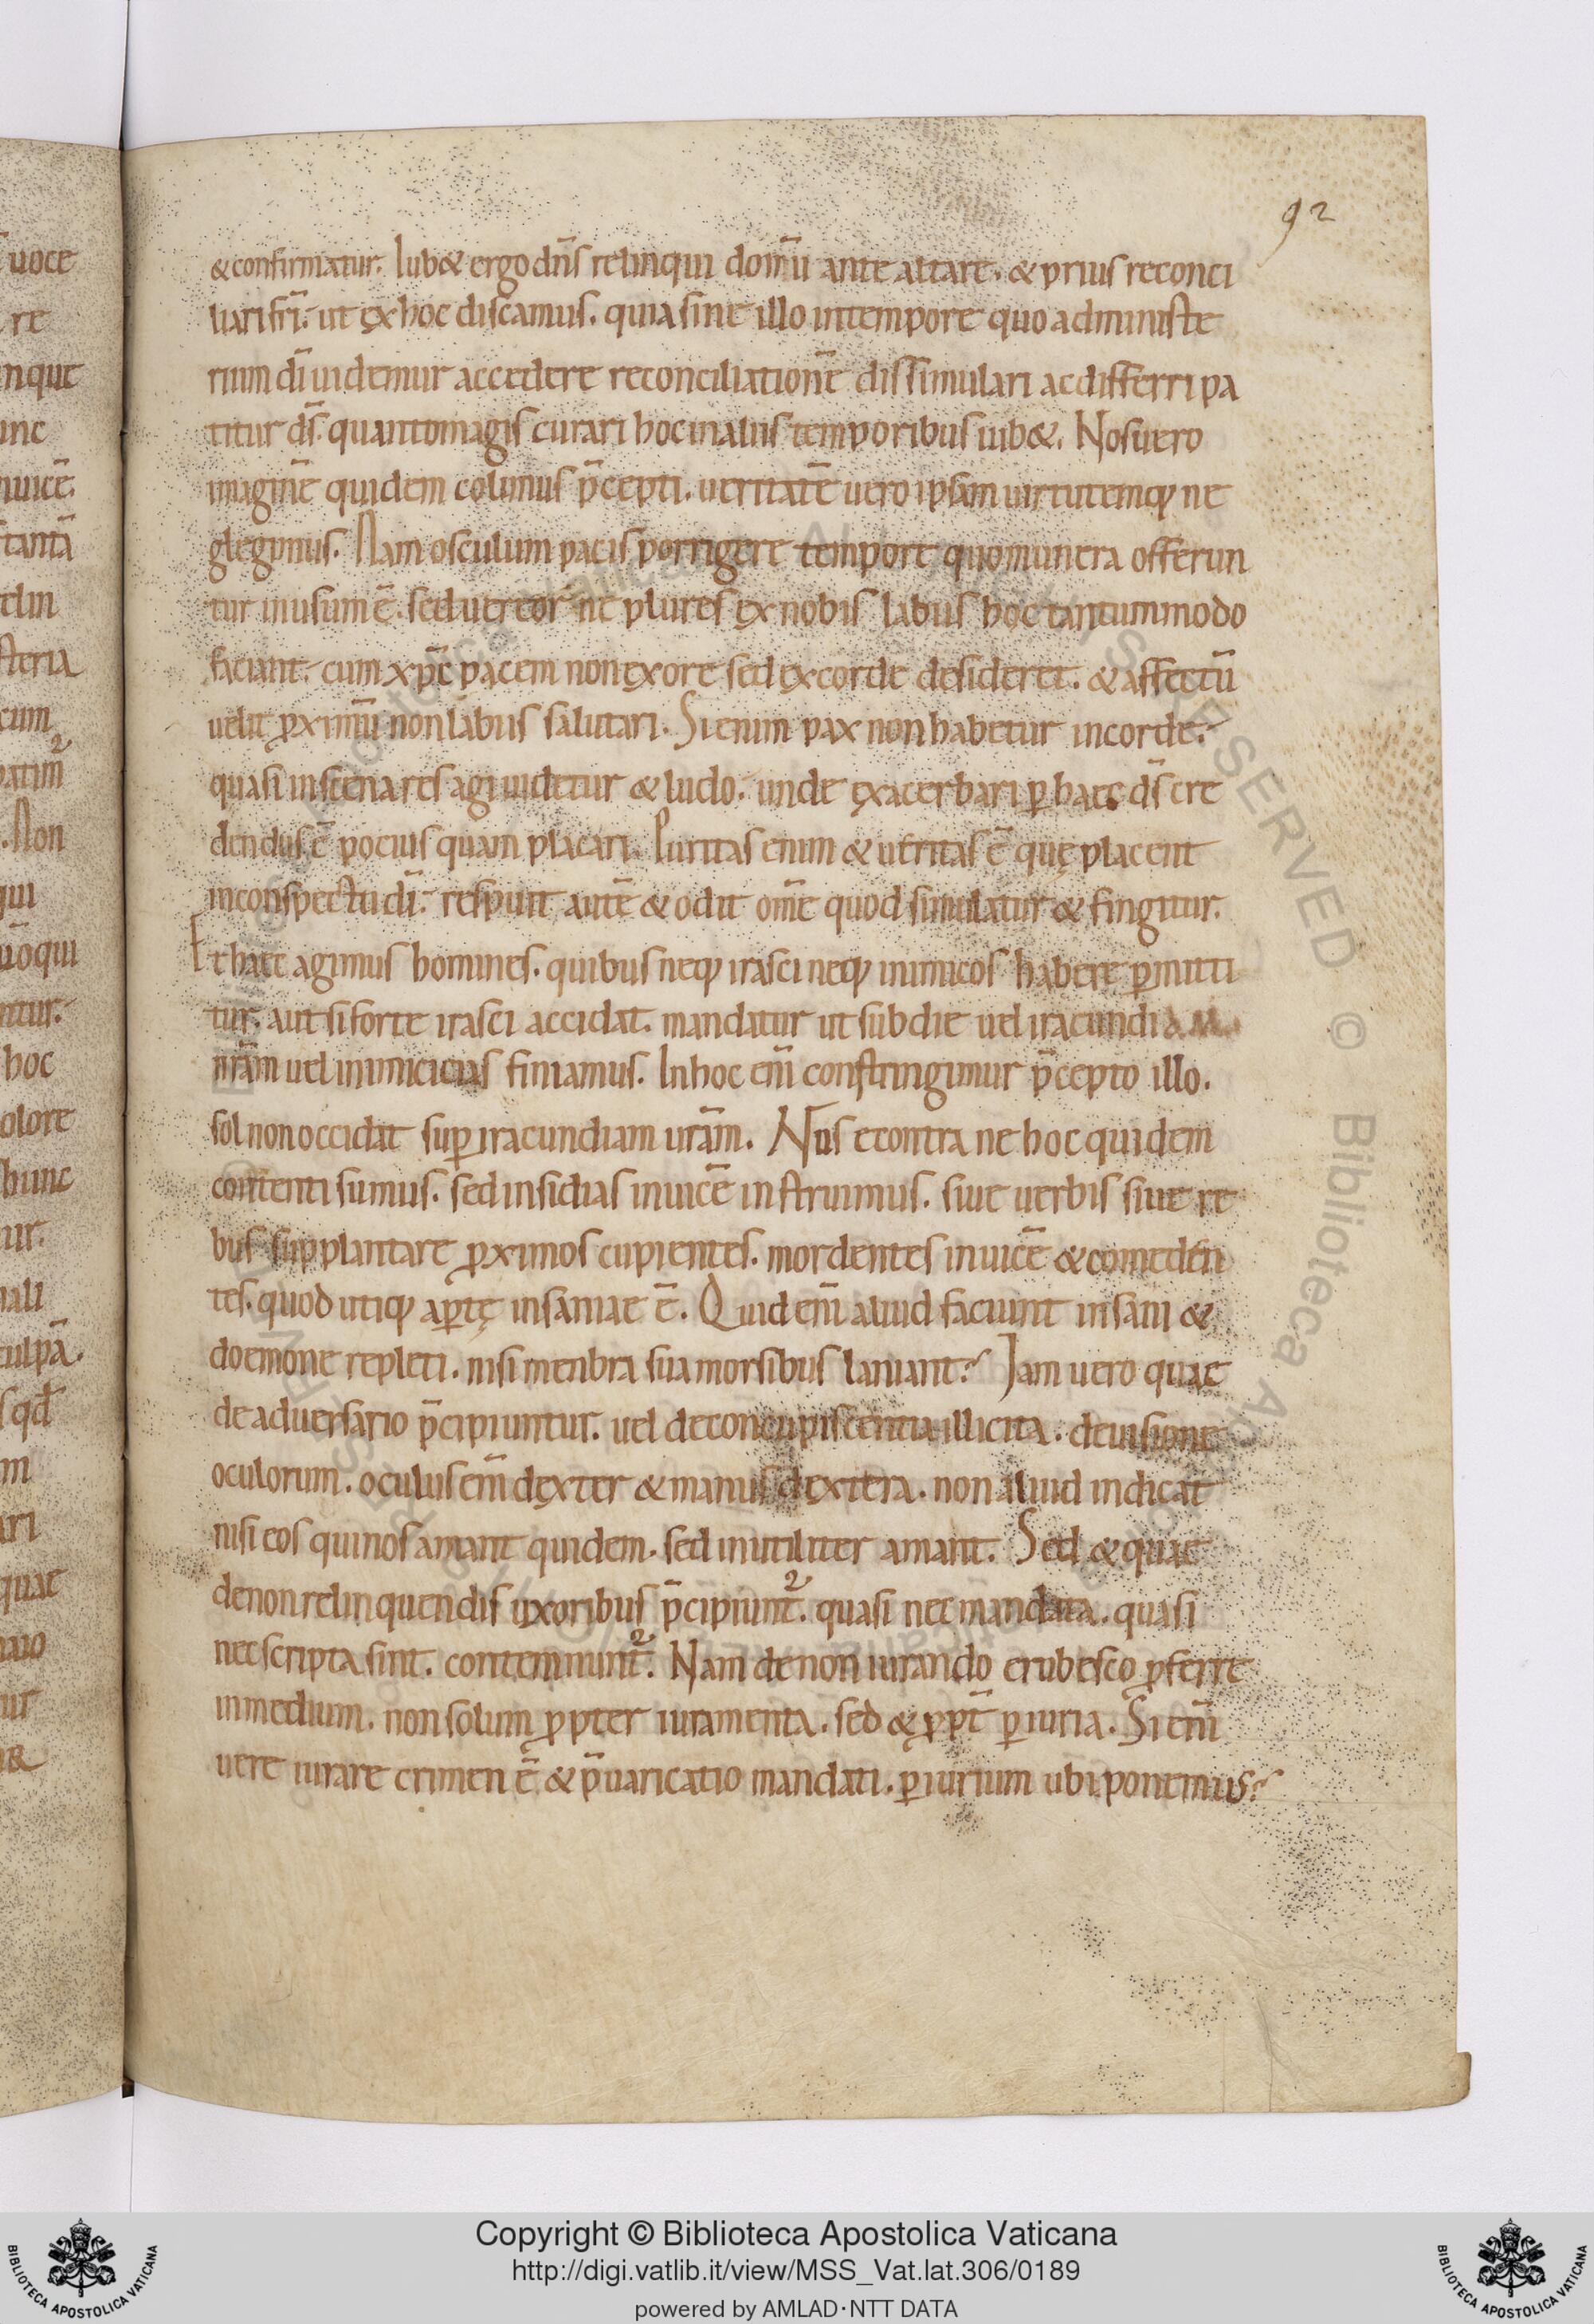 92
&confirmatur. Iub& ergo dn̄s relinqui domū ante altare. & prius reconci
liari fr̄i. ut ęx hoc discamus. quia sine illo in tempore quo ad ministe
rium dī uidemur accedere reconciliationē dissimulari ac differri pa
titur ds̄. quanto magis curari hoc in aliis temporibus iub&. Nos uero
imaginē quidem colimus p̄cepti. ueritatē uero ipsam uirtutemq; ne
glegimus. Nam osculum pacis porrigere tempore quo munera offerun
tur in usum ē. sed uereor ne plures ęx nobis labiis hoc tantummodo
faciant. cum xp̄c pacem non ęx ore sed ęx corde desideret. & affectū
uelit ꝓximū non labiis salutari. Si enim pax non habetur in corde.
quasi in scena res agi uidetur & ludo. unde ęxacerbari ꝑ haec ds̄ cre
dendus ē pocius quam placari. Puritas enim & ueritas ē quę placent
in conspectu dī. respuit autē & odit om̄e quod simulatur & fingitur.
Et haec agimus homines. quibus neq; irasci neq; inimicos habere ꝑmitti
tur. aut si forte irasci accidat. mandatur ut sub die uel iracundiam
nr̄am uel inimicicias finiamus. In hoc eni͞m constringimur p̄cepto illo.
sol non occidat suꝑ iracundiam ur̄am. Nos econtra ne hoc quidem
contenti sumus. sed insidias inuicē instruimus. siue uerbis siue re
bus supplantare ꝓximos cupientes. mordentes inuicē & comeden
tes. quod utiq; aꝑtę insaniae ē. Quid em̄ aliud faciunt insani &
doemone repleti. nisi menbra sua morsibus laniant? Iam uero quae
de aduersario p̄cipiuntur. uel de concupiscentia illicita. de uisione
oculorum. oculus em̄ dęxter & manus dęxtera. non aliud indicat
nisi eos qui nos amant quidem. sed inutiliter amant. Sed & quae
de non relinquendis uxoribus p̄cipiunt᷑. quasi nec mandata. quasi
nec scripta sint. contemnunt᷑. Nam de non iurando erubesco ꝓferre
in medium. non solum ꝓpter iuramenta. sed & ꝓpt̄ ꝑiuria. Si em̄
uere iurare crimen ē & p̄uaricatio mandati. ꝑiurium ubi ponemus?
Copyright © Biblioteca Apostolica Vaticana
http://digi.vatlib.it/view/MSS_Vat.lat.306/0189
powered by AMLAD·NTT DATA